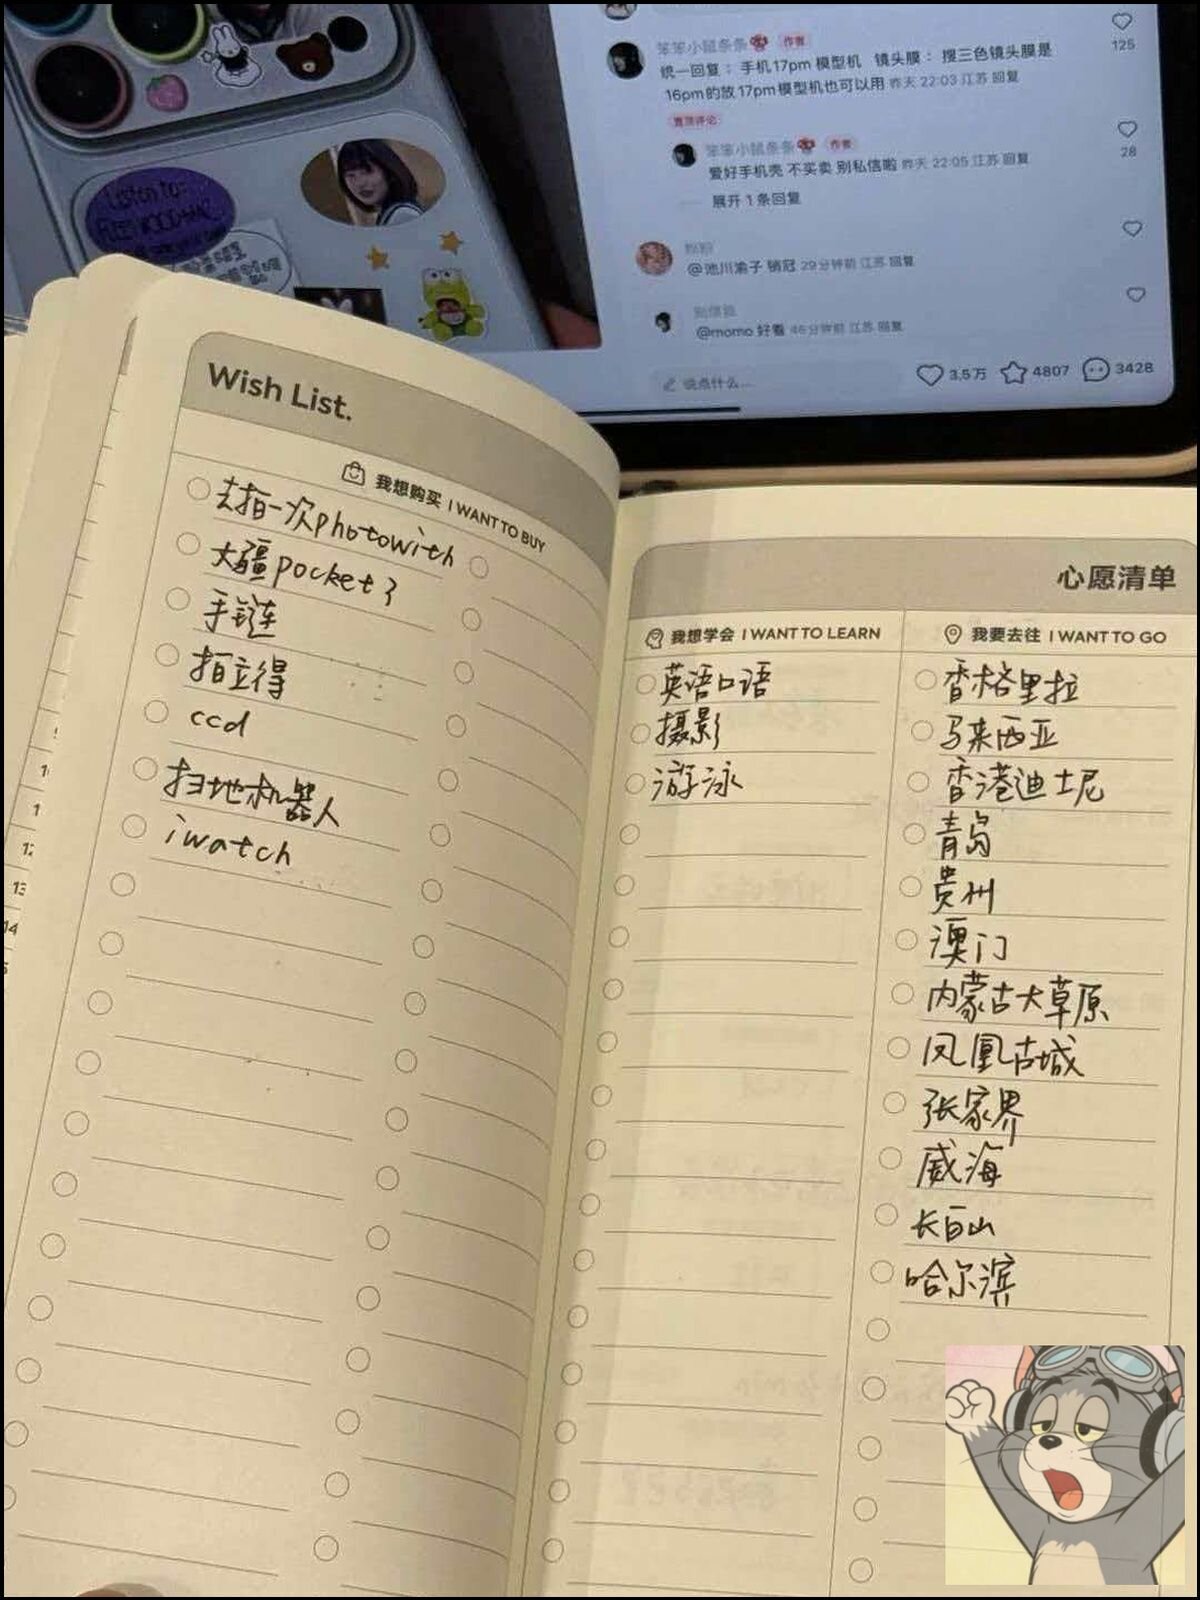 作者
统一回复：手机17pm 模型机 镜头膜：搜三色镜头膜是
16pm的放17pm模型机也可以用 昨天 22:03 江苏 回复
125
置顶评论
作者
爱好手机壳 不买卖 别私信啦 昨天 22:05 江苏 回复
28
展开 1 条回复
@池川渝子 销冠 29分钟前 江苏 回复
@momo 好看 46分钟前 江苏 回复
说点什么...
3.5万
4807
3428
Listen to:
Wish List.
我想购买 I WANT TO BUY
去拍一次photowith
大疆pocket3
手链
拍立得
ccd
扫地机器人
iwatch
心愿清单
我想学会 I WANT TO LEARN
英语口语
摄影
游泳
我要去往 I WANT TO GO
香格里拉
马来西亚
香港迪士尼
青岛
贵州
澳门
内蒙古大草原
凤凰古城
张家界
威海
长白山
哈尔滨